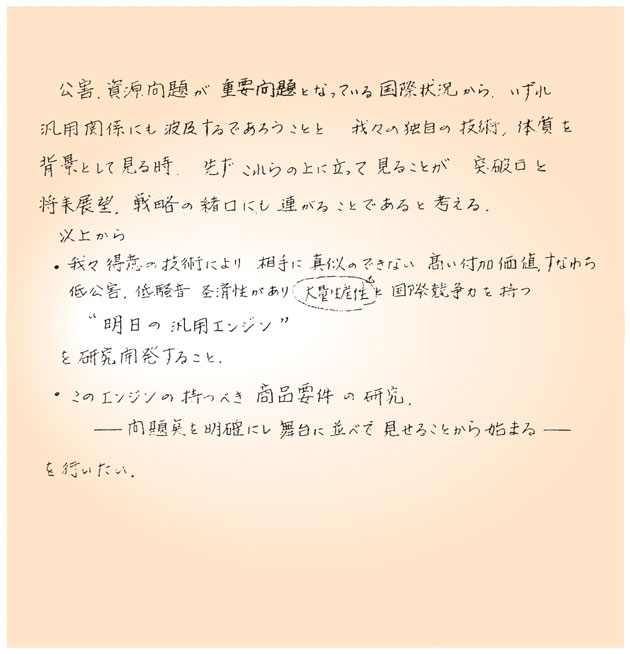 公害、資源問題が重要問題となっている国際状況から、いずれ
汎用関係にも波及するであろうことと 我々の独自の技術、体質を
背景として見る時、先ずこれらの上に立って見ることが 突破口と
将来展望、戦略の緒口にも連がることであると考える。
以上から
・我々得意の技術により 相手に真似のできない 高い付加価値、すなわち
低公害、低騒音 があり 大量生産性と国際競争力を持つ
“明日の汎用エンジン”
を研究開発すること。
・このエンジンの持つべき商品要件の研究。
── 問題点を明確にし舞台に並べて見せることから始まる ──
を行いたい。